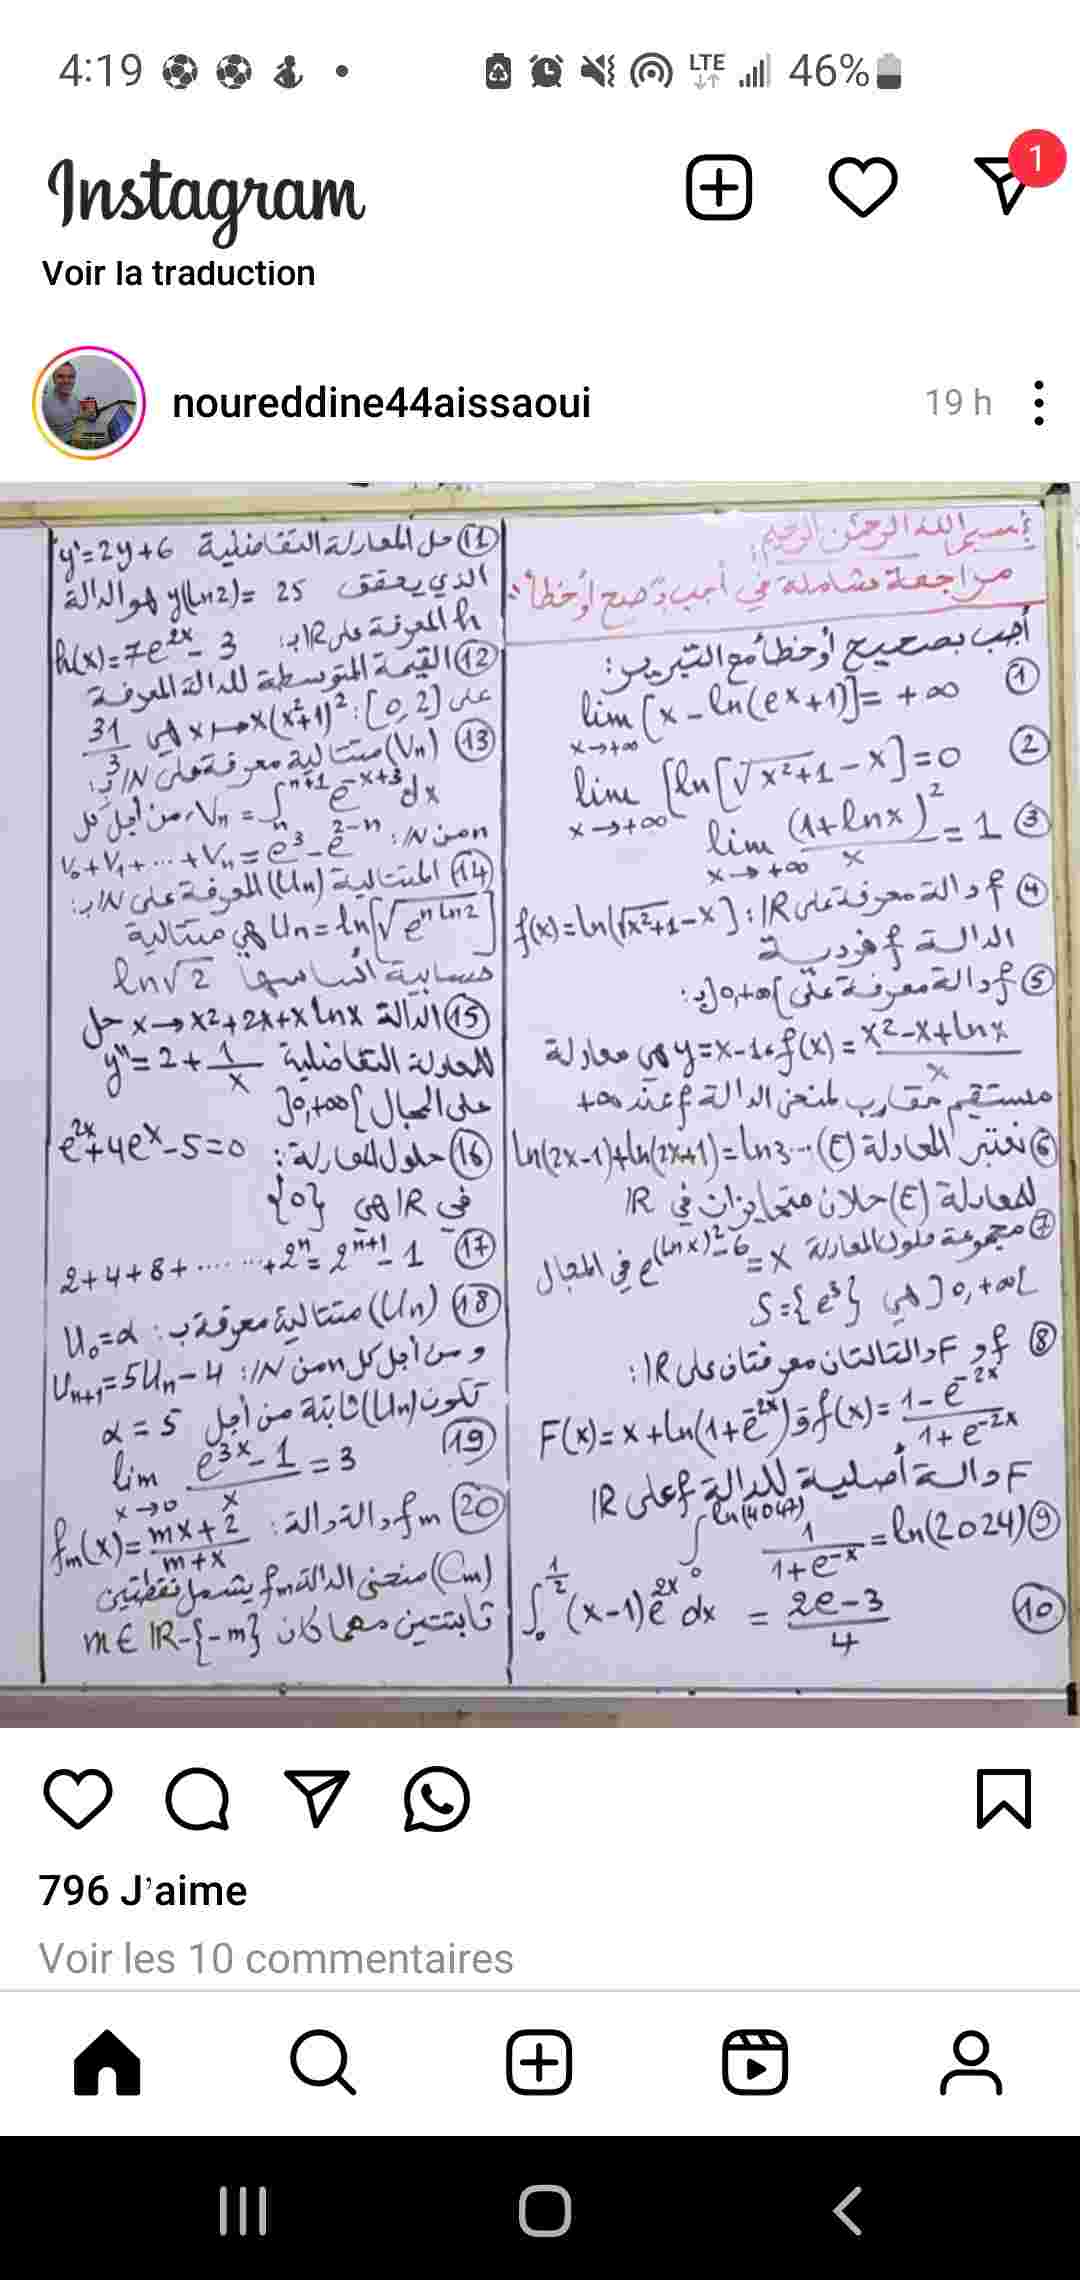 4:19
LTE
46%
Instagram
1
Voir la traduction
noureddine44aissaoui
19 h
بسم الله الرحمن الرحيم:
مراجعة شاملة في أجب بـ"صح أو خطأ":
أجب بصحيح أو خطأ مع التبرير:
① lim [x - ln(e^x+1)] = +∞
x→+∞
② lim [ln[√x²+1 - x] = 0
x→+∞
③ lim (1+lnx)²/x = 1
x→+∞
④ f دالة معرفة على IR: f(x)=ln(√x²+1 - x]
الدالة f فردية
⑤ f دالة معرفة على ]0,+∞[ بـ:
f(x) = (x²-x+lnx)/x ، y=x-1 هي معادلة
مستقيم مقارب لمنحنى الدالة f عند +∞
⑥ نعتبر المعادلة (E)... ln(2x-1)+ln(2x+1)=ln3
للمعادلة (E) حلان متمايزان في IR
⑦ مجموعة حلول المعادلة e^((lnx)²-6) = x في المجال
]0,+∞[ هي S={e³}
⑧ f و F دالتالتان معرفتان على IR:
f(x) = (1-e^-2x)/(1+e^-2x) و F(x)=x+ln(1+e^-2x)
F دالة أصلية للدالة f على IR
⑨ ∫₀^ln(4047) 1/(1+e^-x) = ln(2024)
⑩ ∫₀^½ (x-1)e^2x dx = (2e-3)/4
⑪ حل المعادلة التفاضلية y'=2y+6
الذي يحقق y(ln2)= 25 هو الدالة
h المعرفة على IR بـ: h(x)=7e^2x - 3
⑫ القيمة المتوسطة للدالة المعرفة
على [0,2]: x↦x(x²+1)² هي 31/3
⑬ (Vn) متتالية معرفة على IN بـ:
Vn = ∫ₙ^n+1 e^-x+3 dx ، من أجل كل
n من IN: V₀+V₁+...+Vn = e³ - e^2-n
⑭ المتتالية (Un) المعرفة على IN بـ:
Un = ln[√e^(n ln2)] هي متتالية
حسابية أساسها ln√2
⑮ الدالة x→x²+2x+xlnx حل
للمعادلة التفاضلية y''=2+1/x
على المجال ]0,+∞[
⑯ حلول المعادلة: e^2x+4e^x-5=0
في IR هي {0}
⑰ 2+4+8+......+2^n = 2^n+1 - 1
⑱ (Un) متتالية معرفة بـ: U₀=α
و من أجل كل n من IN: Un+1=5Un-4
تكون (Un) ثابتة من أجل α = 5
⑲ lim (e^3x - 1)/x = 3
x→0
⑳ fm دالة دالة: fm(x)=(mx+2)/(m+x)
(Cm) منحنى الدالة fm يشمل نقطتين
ثابتتين مهما كان m∈IR-{-m}
796 J'aime
Voir les 10 commentaires